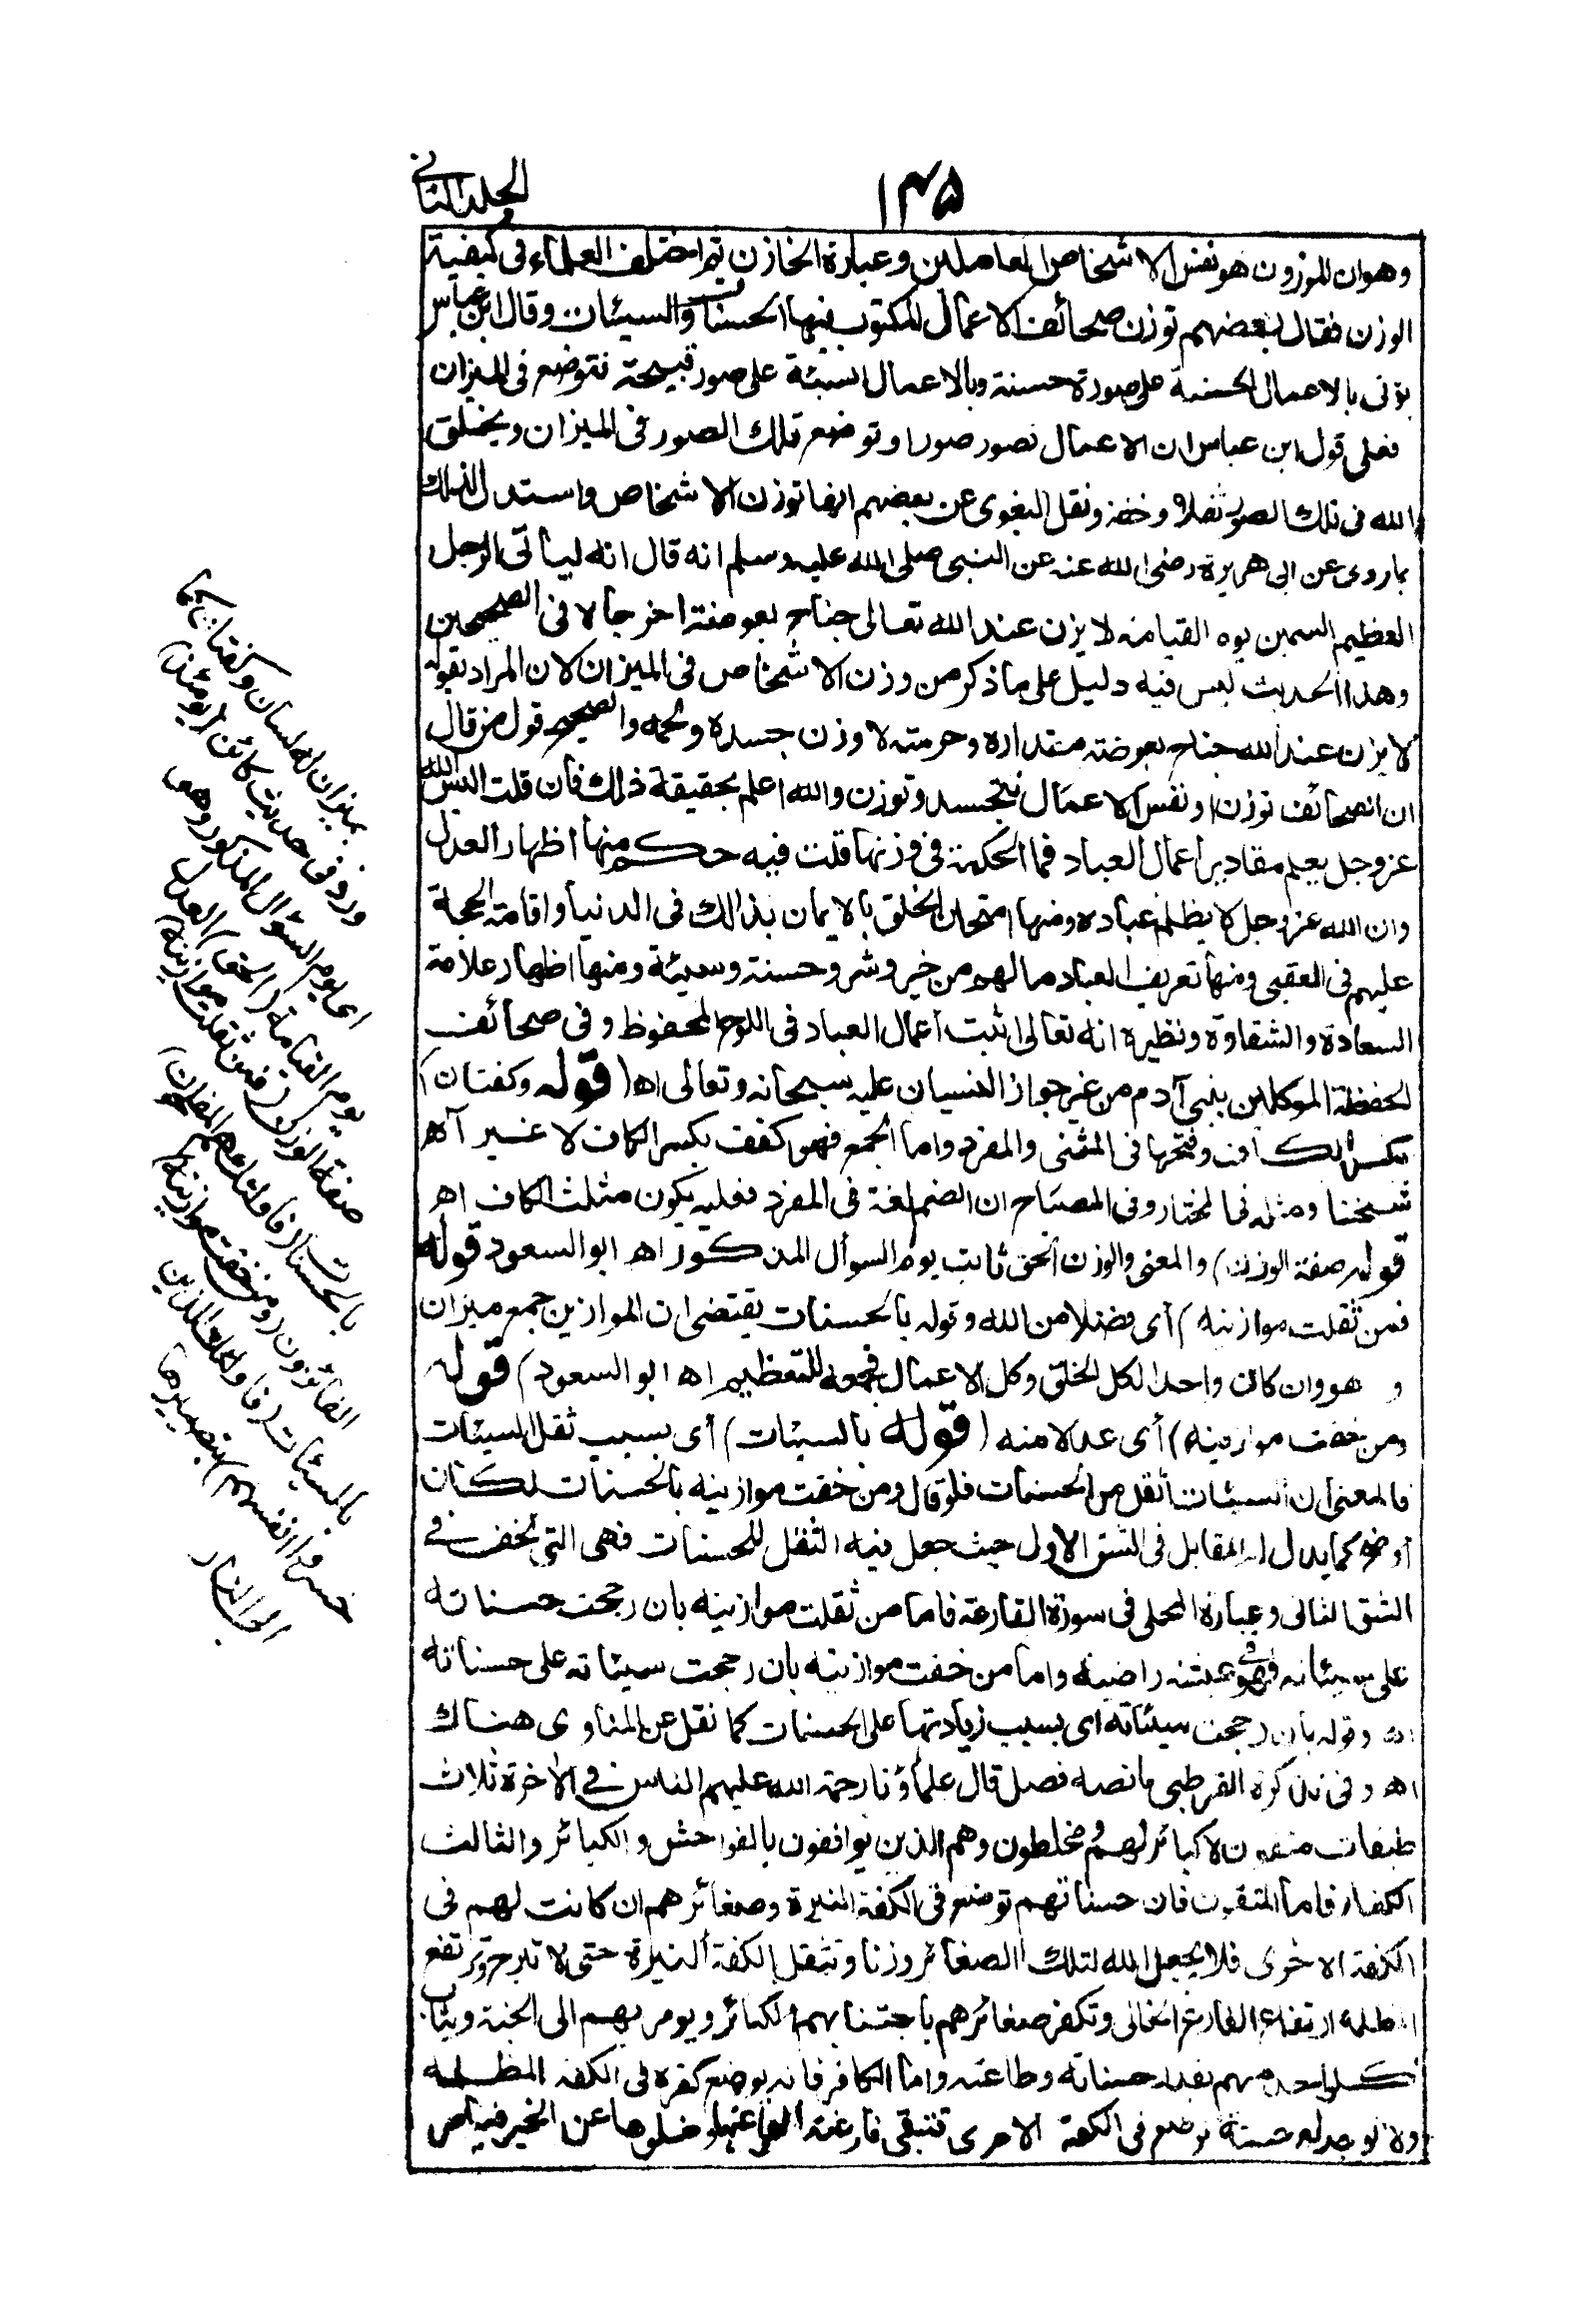 ١٣٥
الجلد الثاني
وهو ان الموزون هو نفس الاشخاص العاملين وعبارة الخازن ثم اختلف العلماء في كيفية
الوزن فقال بعضهم توزن صحائف الاعمال المكتوب فيها الحسنات والسيئات وقال ابن عباس
يؤتى بالاعمال الحسنة على صورة حسنة وبالاعمال السيئة على صور قبيحة فتوضع في الميزان
فعلى قول ابن عباس ان الاعمال تصور صورا وتوضع تلك الصور في الميزان ويخلق
الله في تلك الصور ثقلا وخفة ونقل البغوى عن بعضهم انها توزن الاشخاص واستدل لذلك
بما روى عن ابى هريرة رضى الله عنه عن النبى صلى الله عليه وسلم انه قال انه ليأتى الرجل
العظيم السمين يوم القيامة لا يزن عند الله تعالى جناح بعوضة اخرجاه في الصحيحين
وهذا الحديث ليس فيه دليل على ما ذكر من وزن الاشخاص في الميزان لان المراد بقوله
لا يزن عند الله جناح بعوضة مقداره وحرمته لا وزن جسده ولحمه والصحيح قول من قال
ان الصحائف توزن او نفس الاعمال تتجسد وتوزن والله اعلم بحقيقة ذلك فان قلت اليس الله
عز وجل يعلم مقادير اعمال العباد فما الحكمة في وزنها قلت فيه حكم منها اظهار العدل
وان الله عز وجل لا يظلم عباده ومنها امتحان الخلق بالايمان بذالك في الدنيا واقامة الحجة
عليهم في العقبى ومنها تعريف العباد ما لهم من خير وشر وحسنة وسيئة ومنها اظهار علامة
السعادة والشقاوة ونظيره انه تعالى اثبت اعمال العباد في اللوح المحفوظ وفي صحائف
الحفظة الموكلين ببنى آدم من غير جواز النسيان عليه سبحانه وتعالى اه (قوله وكفتان)
بكسر الكاف وفتحها في المثنى والمفرد واما الجمع فهو كفف بكسر الكاف لا غير اه
شيخنا ومثله في المختار وفى المصباح ان الضم لغة في المفرد فعليه يكون مثلث الكاف اه
قوله صفة الوزن) والمعنى والوزن الحق ثابت يوم السوأل المذكور اه ابو السعود قوله
فمن ثقلت موازينه) أى فضلا من الله وقوله بالحسنات يقتضى ان الموازين جمع ميزان
و هو وان كان واحدا لكل الخلق وكل الاعمال فجمعه للتعظيم اه ابو السعود) قوله
ومن خفت موازينه) أى عدلا منه (قوله بالسيئات) أى بسبب ثقل السيئات
فالمعنى ان السيئات أثقل من الحسنات فلو قال ومن خفت موازينه بالحسنات لكان
أوضح كما يدل له المقابل في الشق الاول حيث جعل فيه الثقل للحسنات فهى التي تخف في
الشق الثانى وعبارة المحلى في سورة القارعة فاما من ثقلت موازينه بان رجحت حسناته
على سيئاته فهو في عيشة راضية واما من خفت موازينه بان رجحت سيئاته على حسناته
اه وقوله بان رجحت سيئاته اى بسبب زيادتها على الحسنات كما نقل عن المناوى هناك
اه وفى تذكرة القرطبى ما نصه فصل قال علماؤنا رحمة الله عليهم الناس في الآخرة ثلاث
طبقات متقون لا كبائر لهم ومخلطون وهم الذين يوافون بالفواحش والكبائر والثالث
الكفار فاما المتقون فان حسناتهم توضع في الكفة النيرة وصغائرهم ان كانت لهم في
الكفة الاخرى فلا يجعل الله لتلك الصغائر وزنا وتثقل الكفة النيرة حتى لا تبرح وترتفع
المظلمة ارتفاع الفارغ الخالى وتكفر صغائرهم باجتنابهم الكبائر ويومر بهم الى الجنة ويثاب
كل واحد منهم بقدر حسناته وطاعته واما الكافر فانه يوضع كفره في الكفة المظلمة
ولا توجد له حسنة توضع في الكفة الاخرى فتبقى فارغة لفراغها وخلوها عن الخير فيأمر
بميزان له لسان وكفتان كما
ورد في حديث كائن (يومئذ)
اى يوم السؤال المذكور وهو
يوم القيامة (الحق) العدل
صفة الوزن (فمن ثقلت موازينه)
بالحسنات (فاولئك هم المفلحون)
الفائزون (ومن خفت موازينه)
بالسيئات (فاولئك الذين
خسروا انفسهم) بتصييرها
الى النار